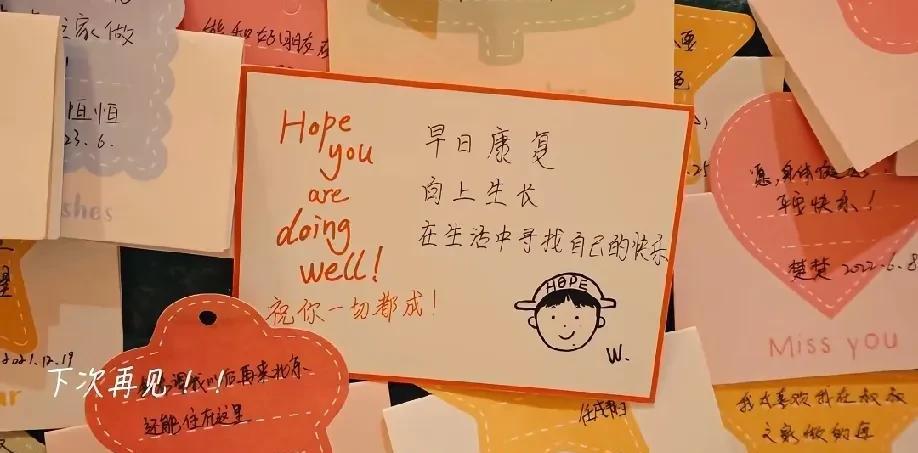 家做
恒恒
23.6.
shes
能和好朋友在
Hope
you
are
doing
well!
祝你一切都成!
早日康复
向上生长
在生活中寻找自己的快乐
HOPE
W.
愿,身体健
平安快乐!
楚楚 2022.6.8
Miss you
2021.12.19
下次再见!!!
我以后再来北京、
还能住在这里
我太喜欢我在叔叔